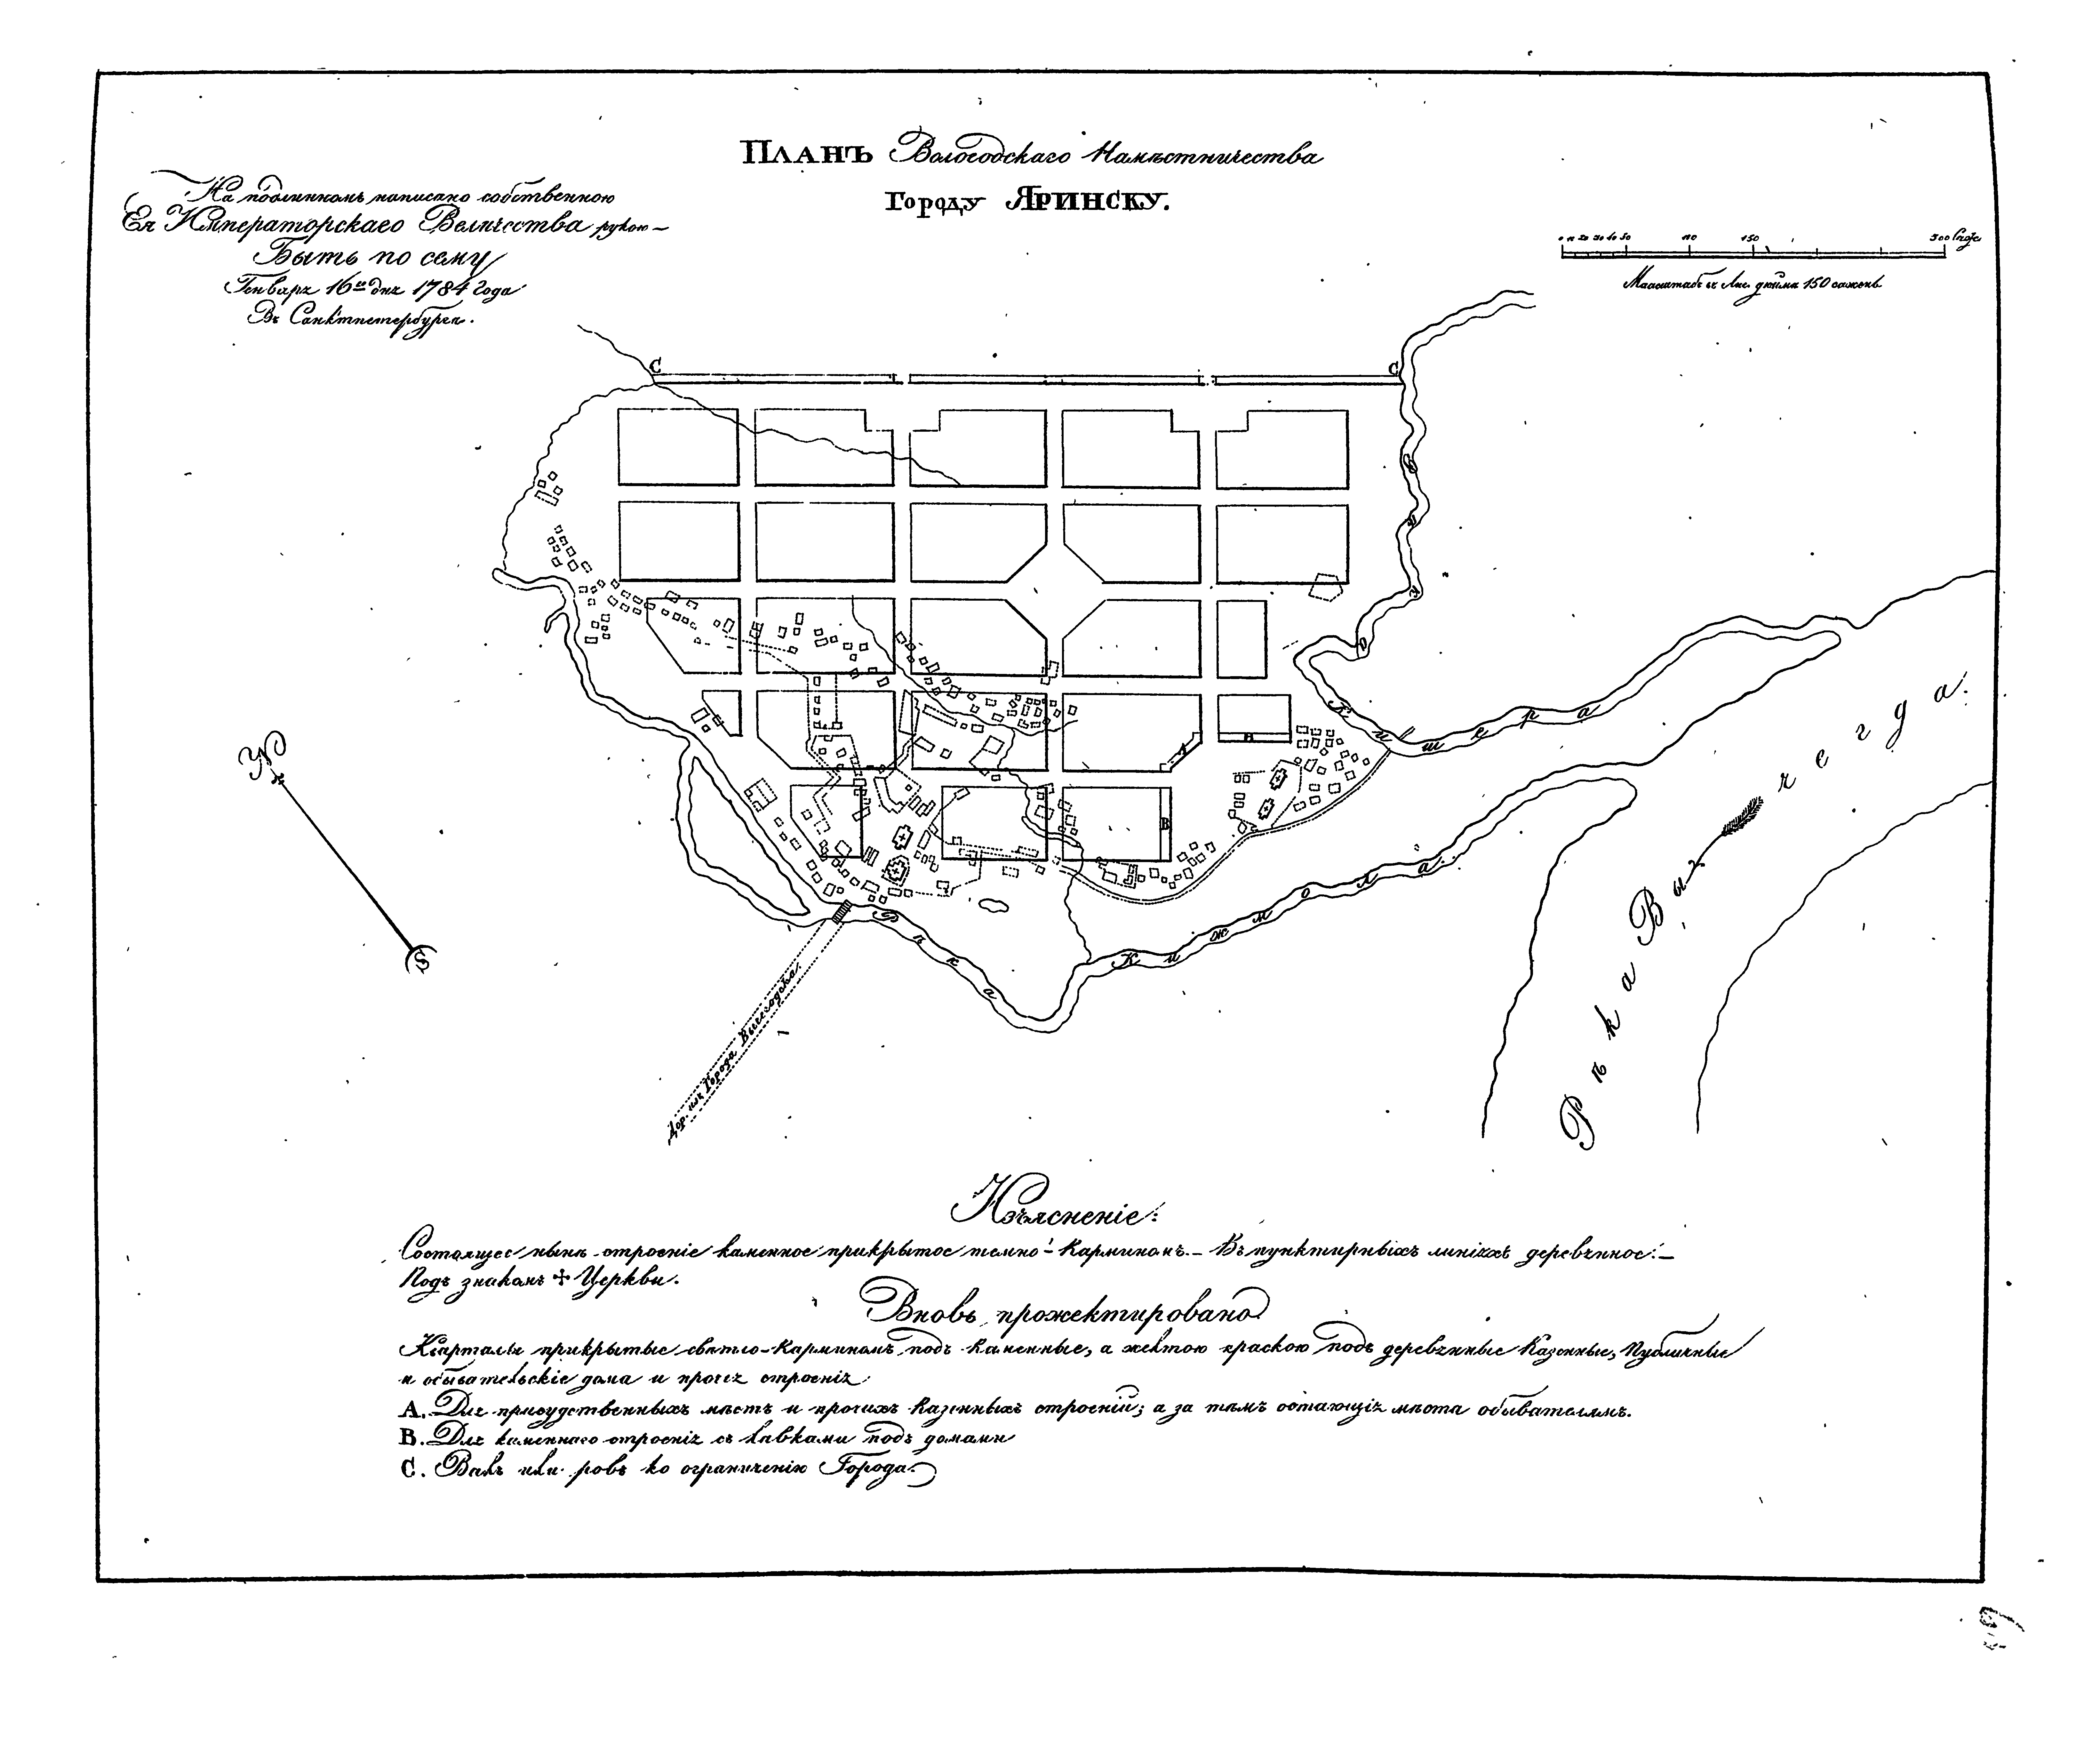 ПЛАНЪ Вологодскаго Намѣстничества
Городу ЯРИНСКУ.
На подлинномъ написано собственною
Ея Императорскаго Величества рукою –
Быть по сему
Генваря 16го дня 1784 Года
Въ Санктпетербургѣ.
0 10 20 30 40 50 100 150 300 Саж.
Масштабъ въ Анг. дюймѣ 150 саженъ.
С
С
Рѣка Кишера
А
В
В
Рѣка Кижмола
Рѣка Вычегда.
S
Дор. изъ Города Вычегодска
Изъясненіе:
Состоящее нынѣ строеніе каменное прикрытое темно-Карминомъ. – Въ пунктирныхъ линіяхъ деревянное. –
Подъ знакомъ ✢ Церкви.
Вновь прожектировано
Кварталы прикрытые свѣтло-Карминомъ подъ каменные, а желтою краскою подъ деревянные Казенные, Публичные
и обывательскіе дома и прочія строенія
А. Для присудственныхъ мѣстъ и прочихъ Казенныхъ строеній; а за тѣмъ остающія мѣста обывателямъ.
В. Для каменнаго строенія съ лавками подъ домами
С. Валъ или ровъ ко ограниченію Города.